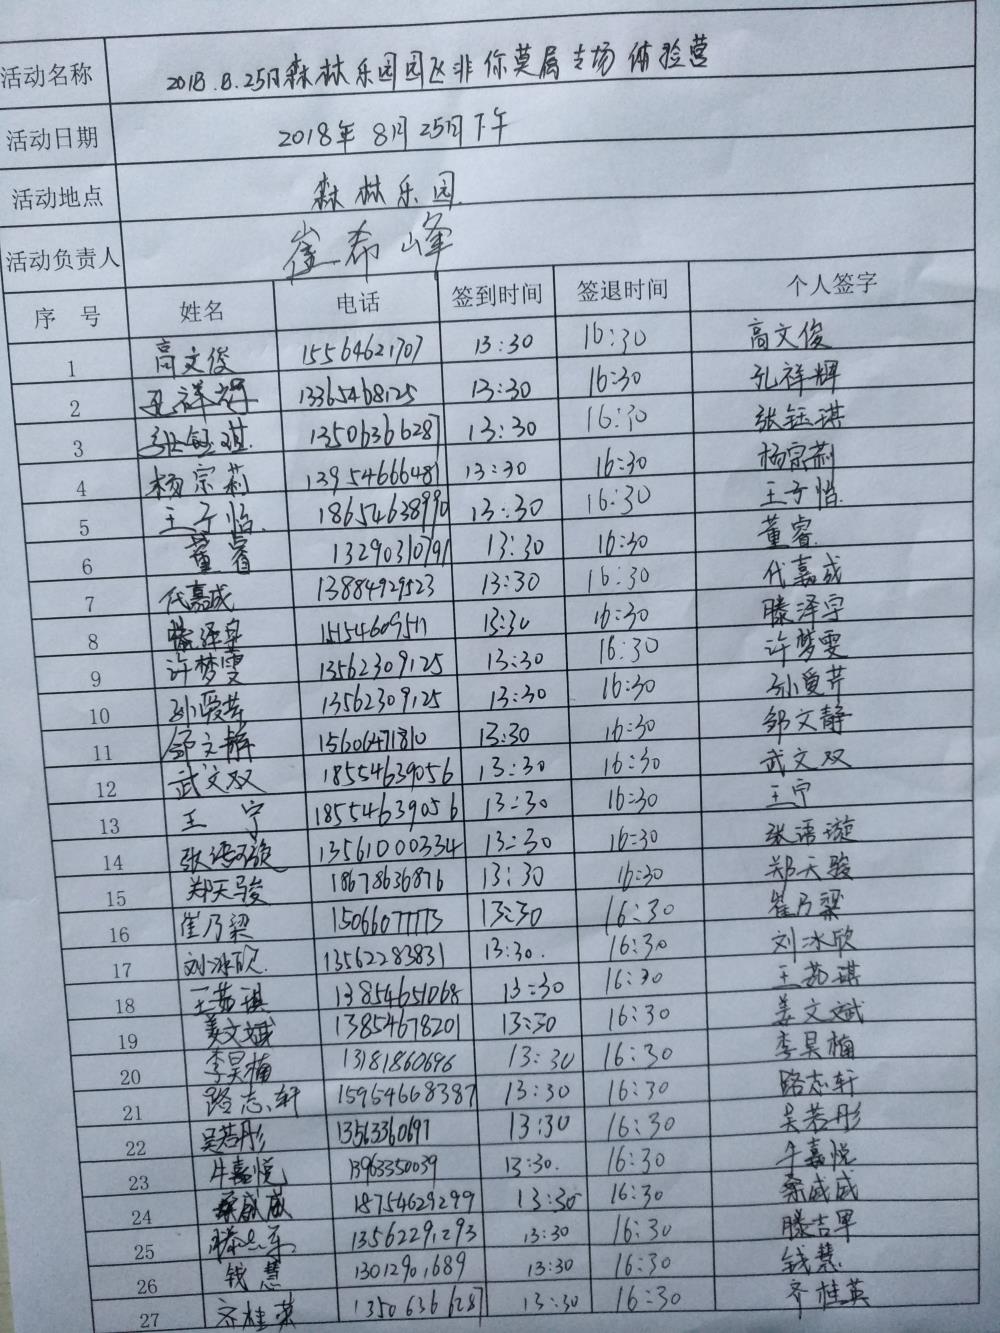 活动名称 2018.8.25日森林乐园园区非你莫属专场体验营
活动日期 2018年8月25日下午
活动地点 森林乐园
活动负责人 崔希峰
序号 姓名 电话 签到时间 签退时间 个人签字
1 高文俊 15564621707 13:30 16:30 高文俊
2 孔祥辉 13365468125 13:30 16:30 孔祥辉
3 张钰琪 13506366287 13:30 16:30 张钰琪
4 杨宗莉 13954666481 13:30 16:30 杨宗莉
5 王子怡 18654638990 13:30 16:30 王子怡
6 董睿 13290310791 13:30 16:30 董睿
7 代嘉成 13884929523 13:30 16:30 代嘉成
8 滕泽宇 15154609511 13:30 16:30 滕泽宇
9 许梦雯 13562309125 13:30 16:30 许梦雯
10 孙爱芹 13562309125 13:30 16:30 孙爱芹
11 邹文静 15606471810 13:30 16:30 邹文静
12 武文双 18554639056 13:30 16:30 武文双
13 王宁 18554639056 13:30 16:30 王宁
14 张语漩 13561000334 13:30 16:30 张语漩
15 郑天骏 18678636876 13:30 16:30 郑天骏
16 崔乃梁 15066077773 13:30 16:30 崔乃梁
17 刘冰欣 13562283831 13:30. 16:30 刘冰欣
18 王茹琪 13854651068 13:30 16:30 王茹琪
19 姜文斌 13854678201 13:30 16:30 姜文斌
20 李昊楠 13181860696 13:30 16:30 李昊楠
21 路志轩 15954668387 13:30 16:30 路志轩
22 吴若彤 13563360697 13:30 16:30 吴若彤
23 牛嘉悦 13963350039 13:30. 16:30 牛嘉悦
24 桑威威 18754629299 13:30 16:30 桑威威
25 13562291293 13:30 16:30 滕吉军
26 钱慧 13012901689 13:30 16:30 钱慧
27 齐桂英 13506366287 13:30 16:30 齐桂英